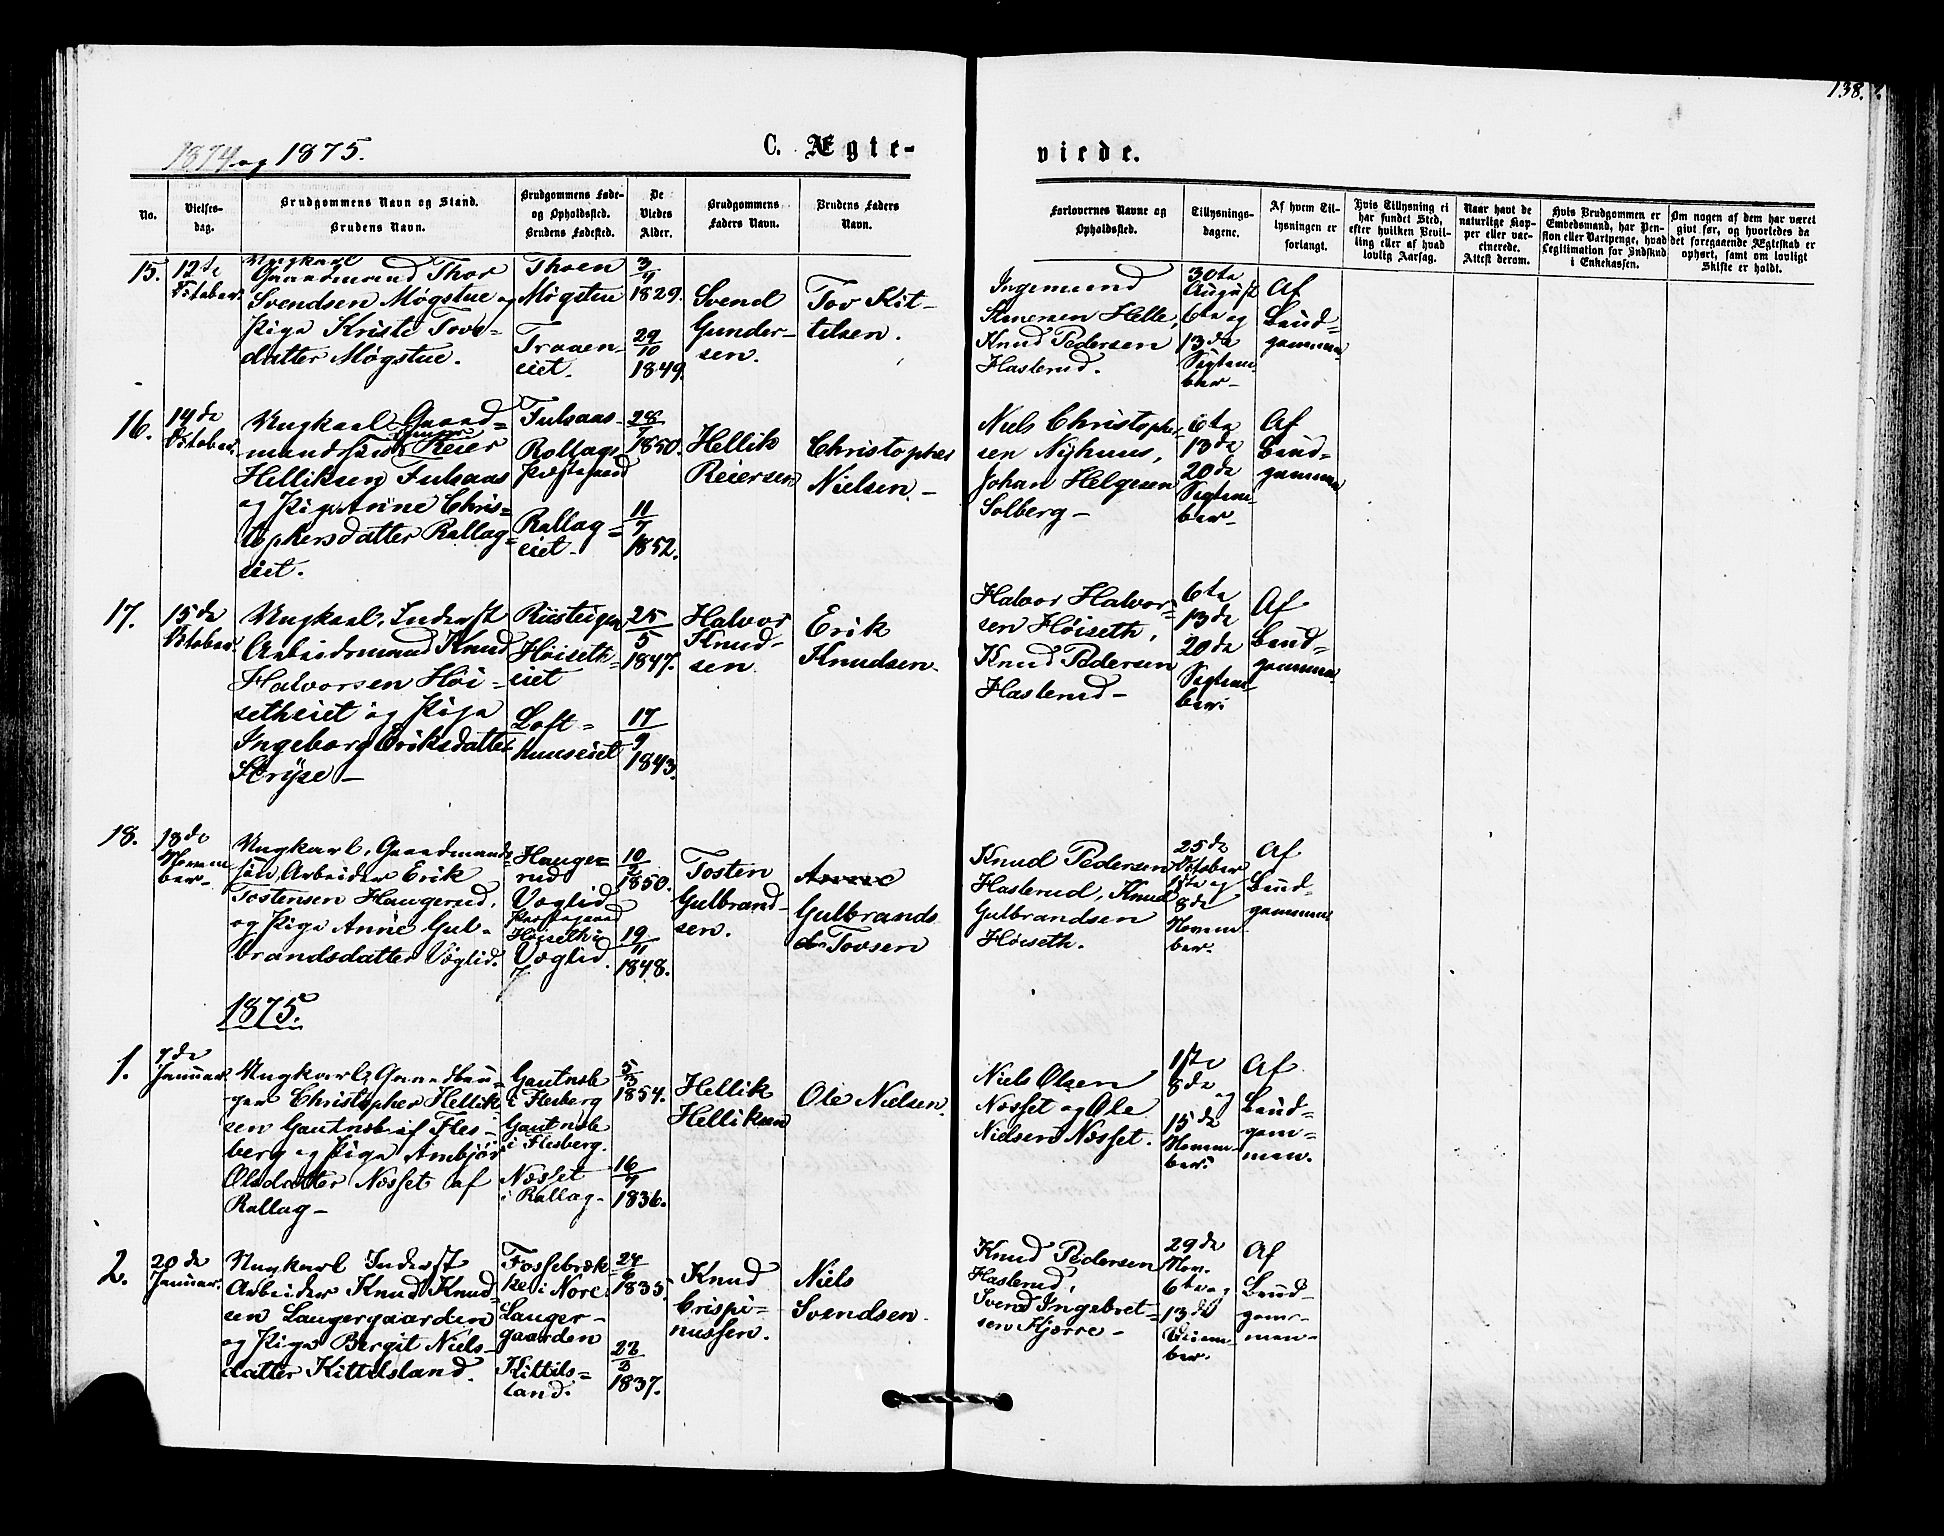 138.
1874 og 1875.
C. Ægte-
viede.
No.
Vielses-
dag.
Brudgommens Navn og Stand.
Brudens Navn.
Brudgommens Føde-
og Opholdssted.
Brudens Fødested.
De
Viedes
Alder.
Brudgommens
Faders Navn.
Brudens Faders
Navn.
Forlovernes Navne og
Opholdssted.
Tillysnings-
dagene.
Af hvem Til-
lysningen er
forlangt.
Hvis Tillysning ei
har fundet Sted,
efter hvilken Bevil-
ling eller af hvad
lovlig Aarsag.
Naar havt de
naturlige Kop-
per eller vac-
cinerede.
Attest derom.
Hvis Brudgommen er
Embedsmand, har Pen-
sion eller Vartpenge, hvad
Legitimation for Indskud
i Enkekassen.
Om nogen af dem har været
givt før, og hvorledes da
det foregaaende Ægteskab er
ophørt, samt om lovligt
Skifte er holdt.
15.
12te
October.
Ungkarl
Gaardmand Thor
Svendsen Møgstue og
Pige Kristi Tovs-
datter Møgstue.
Thoen
Møgstue
Traaen-
eiet.
3/9
1829.
29/10
1849.
Svend
Gunder-
sen.
Tov Kit-
telsen.
Ingemund
Steenersen Helle,
Knud Pedersen
Haslerud.
30te
August
6te og
13de
Septem-
ber-
Af
Brud-
gommen
16.
14de
October.
Ungkarl Gaard-
mandssøn Reier
Helliksen Fulsaas
og Pige Anne Chris-
tophersdatter Rollag-
eiet.
Fulsaas
Rollags
Præstegjeld
Rollag-
eiet.
28/7
1850.
11/7
1852.
Hellik
Reiersen
Christopher
Nielsen.-
Niels Christopher-
sen Nyhuus,
Johan Helgesen
Solberg-
6te
13de
20de
Septem-
ber-
Af
Brud-
gommen
17.
15de
October.
Ungkarl, Inderst
Arbeidsmand Knud
Halvorsen Høi-
setheiet og Pige
Ingeborg Eriksdatter
Stryse-
Riisteigen
Høiseth-
eiet
Loft-
huuseiet
25/5
1847.
17/9
1843.
Halvor
Knud-
sen.
Erik
Knudsen.
Halvor Halvor-
sen Høiseth,
Knud Pedersen
Haslerud-
6te
13de
20de
Septem-
ber.
Af
Brud-
gommen.
18.
18de
Novem-
ber-
Ungkarl, Gaardmands-
søn, Arbeider Erik
Tostensen Haugerud,
og Pige Anne Gul-
brandsdatter Væglid.
Hauge-
rud
Væglid
Præstegjeld
Høiseth i
Væglid
10/2
1850.
19/11
1848.
Tosten
Gulbrand-
sen.
Gulbrand
Tovsen
Knud Pedersen
Haslerud, Knud
Gulbrandsen
Høiseth.
25de
October
1ste og
8de
Novem-
ber.
Af
Brud-
gommen
1875.
1.
7de
Januar.
Ungkarl, Gaardbru-
ger Christopher Hellik-
sen Gautneb af Fles-
berg og Pige Ambjør
Olsdatter Næsset af
Rollag-
Gautneb
i Flesberg
Gautneb
i Flesberg.
Næsset
i Rollag-
5/3
1854.
16/7
1836.
Hellik
Helliksen
Ole Nielsen.
Niels Olsen
Næsset og Ole
Nielsen Næsset.
1ste
8de
og
15de
Novem-
ber.
Af
Brud-
gom-
men.
2.
20de
Januar.
Ungkarl Inderst
Arbeider Knud Knud-
sen Langergaarden
og Pige Bergit Niels-
datter Kittilsland.
Fossebræk-
ke i Nore
Langer-
gaarden
Kittils-
land.
24/6
1835.
22/2
1837.
Knud
Crispi-
nussen.
Niels
Svendsen.
Knud Pedersen
Haslerud,
Svend Ingebret-
sen Kjærre-
29de
Nov.
6te og
13de
Decem-
ber.
Af
Brud-
gom-
men-